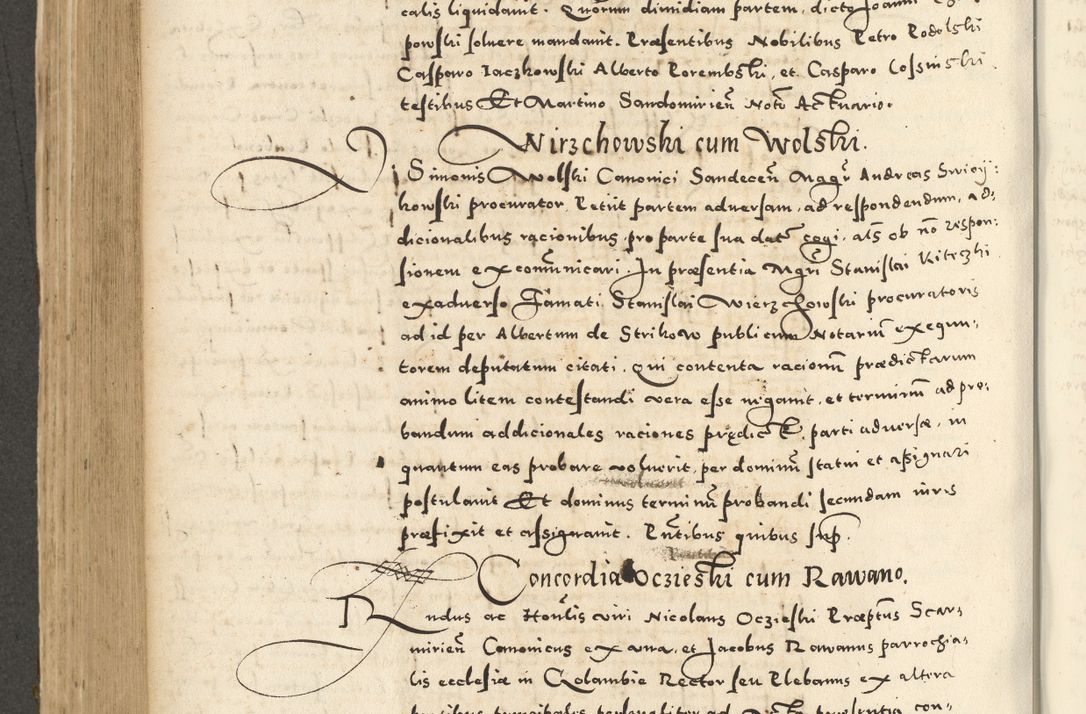 calis liquidavit. Quorum dimidiam partem, dicto Joanni
powski solvere mandavit. Præsentibus Nobilibus Petro Rodolski
Casparo Iaczkowski Alberto Porembski, et Casparo Cossinski
testibus Et Martino Sandomirien̄ Not̄o Actuario.
Wirzchowski cum Wolski.
Simonis Wolski Canonici Sandecen̄ Magr̄ Andreas Swiey:
kowski procurator Petiit partem adversam, ad respondendum, ad:
dicionalibus racionibus pro parte sua dat̄ cogi, al̄s ob nō respon:
sionem excom̄unicari. In præsentia Mgr̄i Stanislai Kiticzki
ex adverso Famati Stanislai Wierzchowski procuratoris
ad id per Albertum de Strikow publicum Notariū exequu:
torem deputatum citati, Qui contenta racionū prædictarum
animo litem contestandi vera esse negavit, et terminū ad pro:
bandum addicionales raciones prędict̄ parti adversæ, in
quantum eas probare voluerit, per dominū statui et assignari
postulavit Et dominus terminū probandi secundam iuris
præfixit et assignavit. Pn̄tibus quibus sup̄.
Concordia Oczieski cum Rawano.
Rn̄dus ac Hon̄lis viri Nicolaus Oczieski Præp̄tus Scar:
mirien̄ Canonicus ex una, et Jacobus Rawanus parrochia:
lis ecclesiæ in Golambie Rector seu Plebanus ex altera